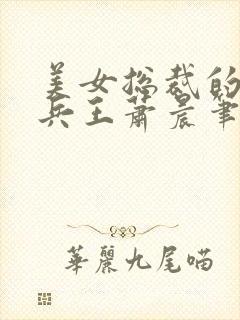 美女总裁的
兵王萧晨笔
華麗九尾喵